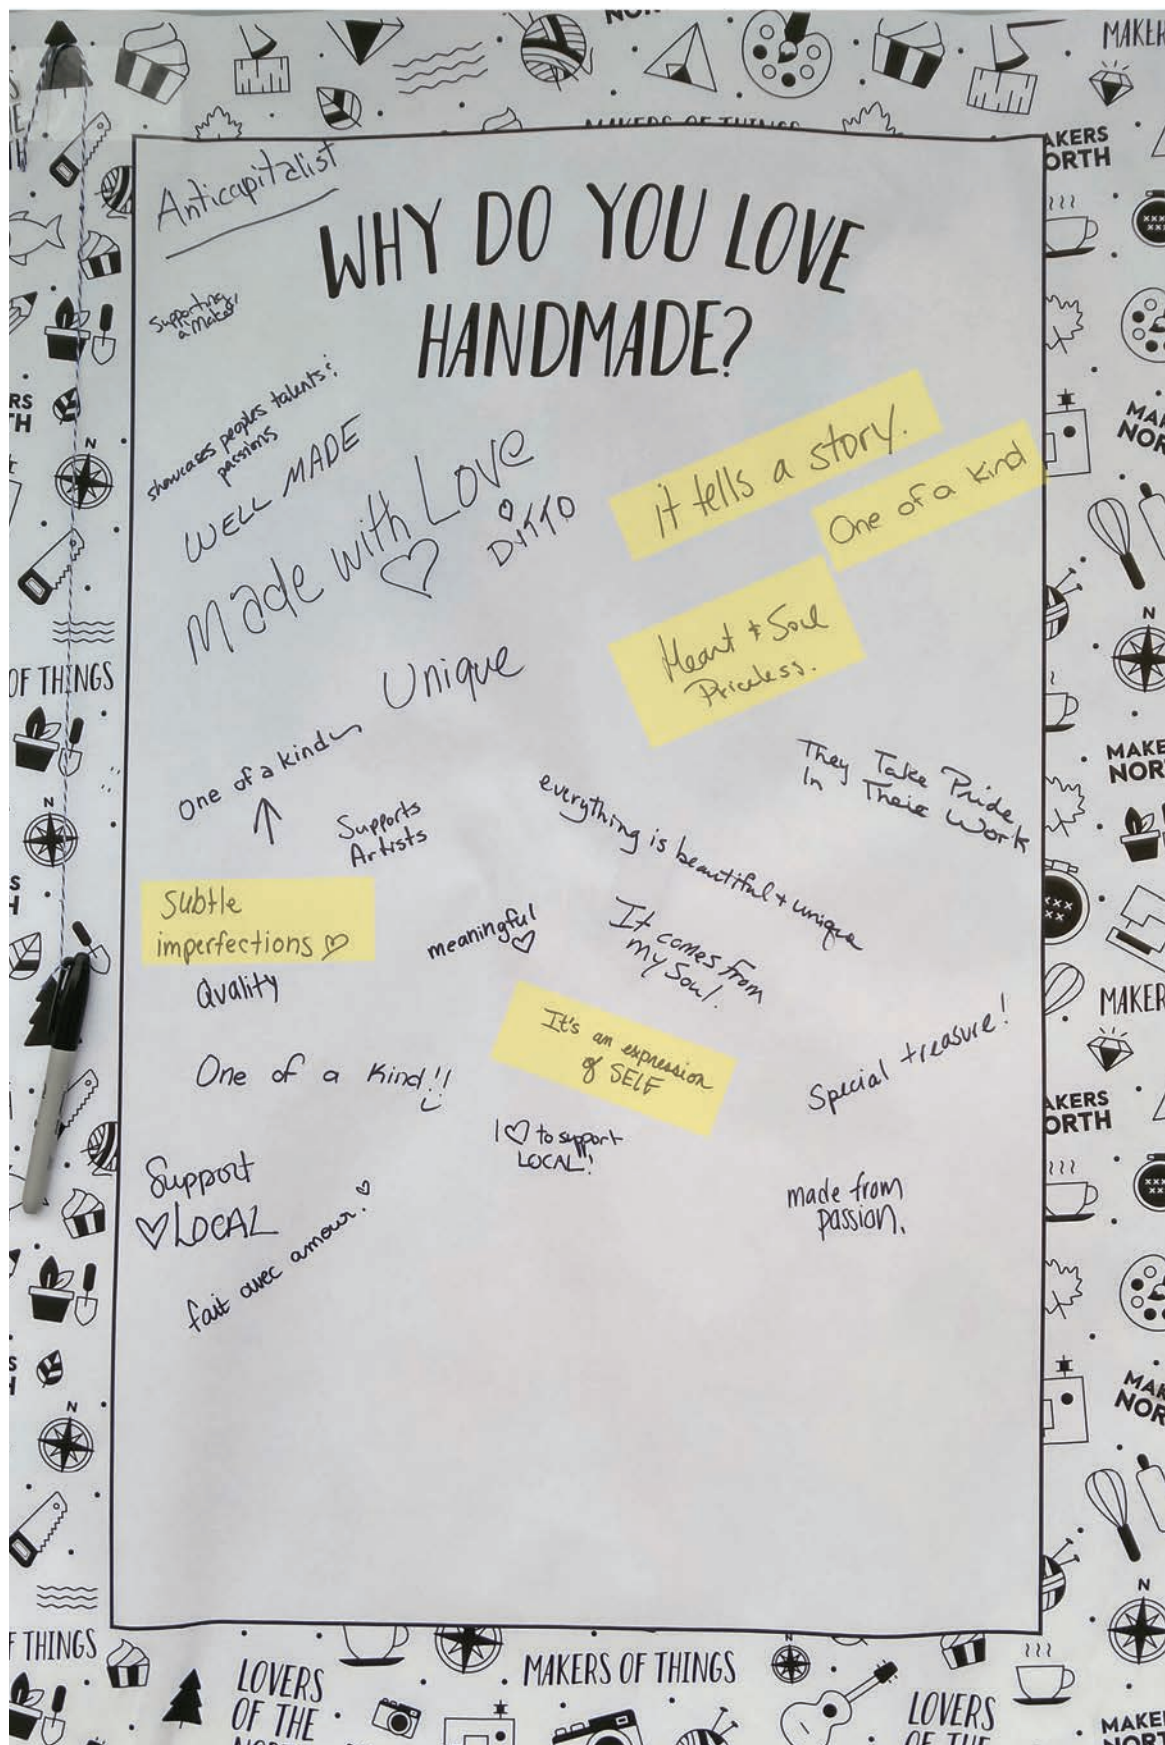 MAKERS OF THINGS
Anticapitalist
WHY DO YOU LOVE
HANDMADE?
Supporting
a Maker
showcases peoples talents &
passions
WELL MADE
Made with Love
DITTO
it tells a story.
One of a kind
Heart + Soul
Priceless.
Unique
One of a kind
Supports
Artists
They Take Pride
In Their Work
everything is beautiful + unique
Subtle
imperfections
meaningful
It comes from
my Soul!
Quality
It's an expression
of SELF
One of a Kind!!
Special treasure!
I ♡ to support
LOCAL!
Support
♡ LOCAL
made from
passion.
fait avec amour!
OF THINGS
MAKERS
NORTH
F THINGS
LOVERS
OF THE
MAKERS OF THINGS
LOVERS
OF THE